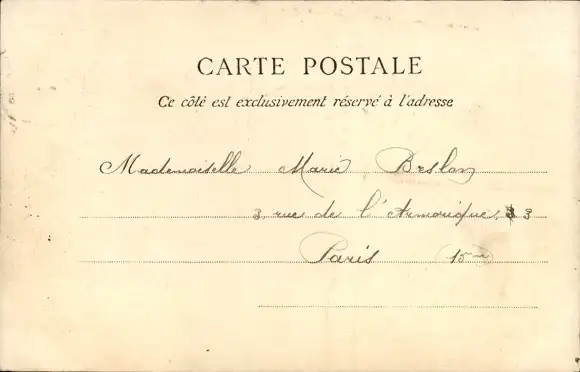 CARTE POSTALE
Ce côté est exclusivement réservé à l'adresse
Mademoiselle Marie Breslon
3, rue de l'Armorique, 3
Paris (15me)